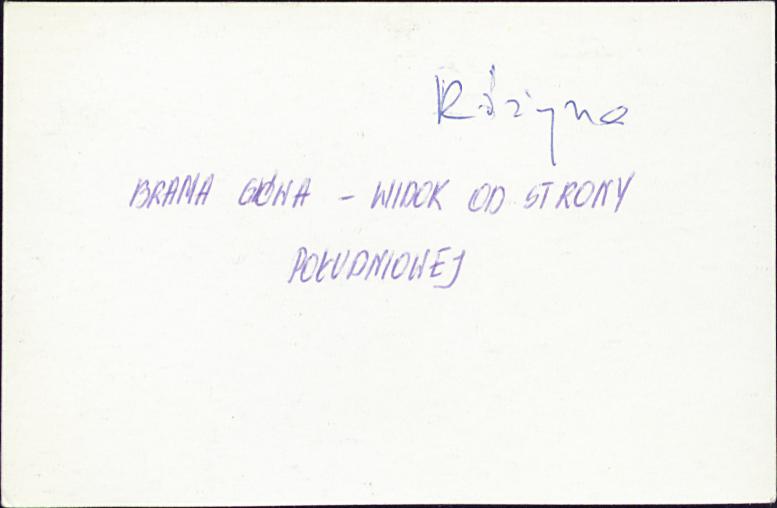 Różyna
BRAMA GŁÓWNA – WIDOK OD STRONY
POŁUDNIOWEJ